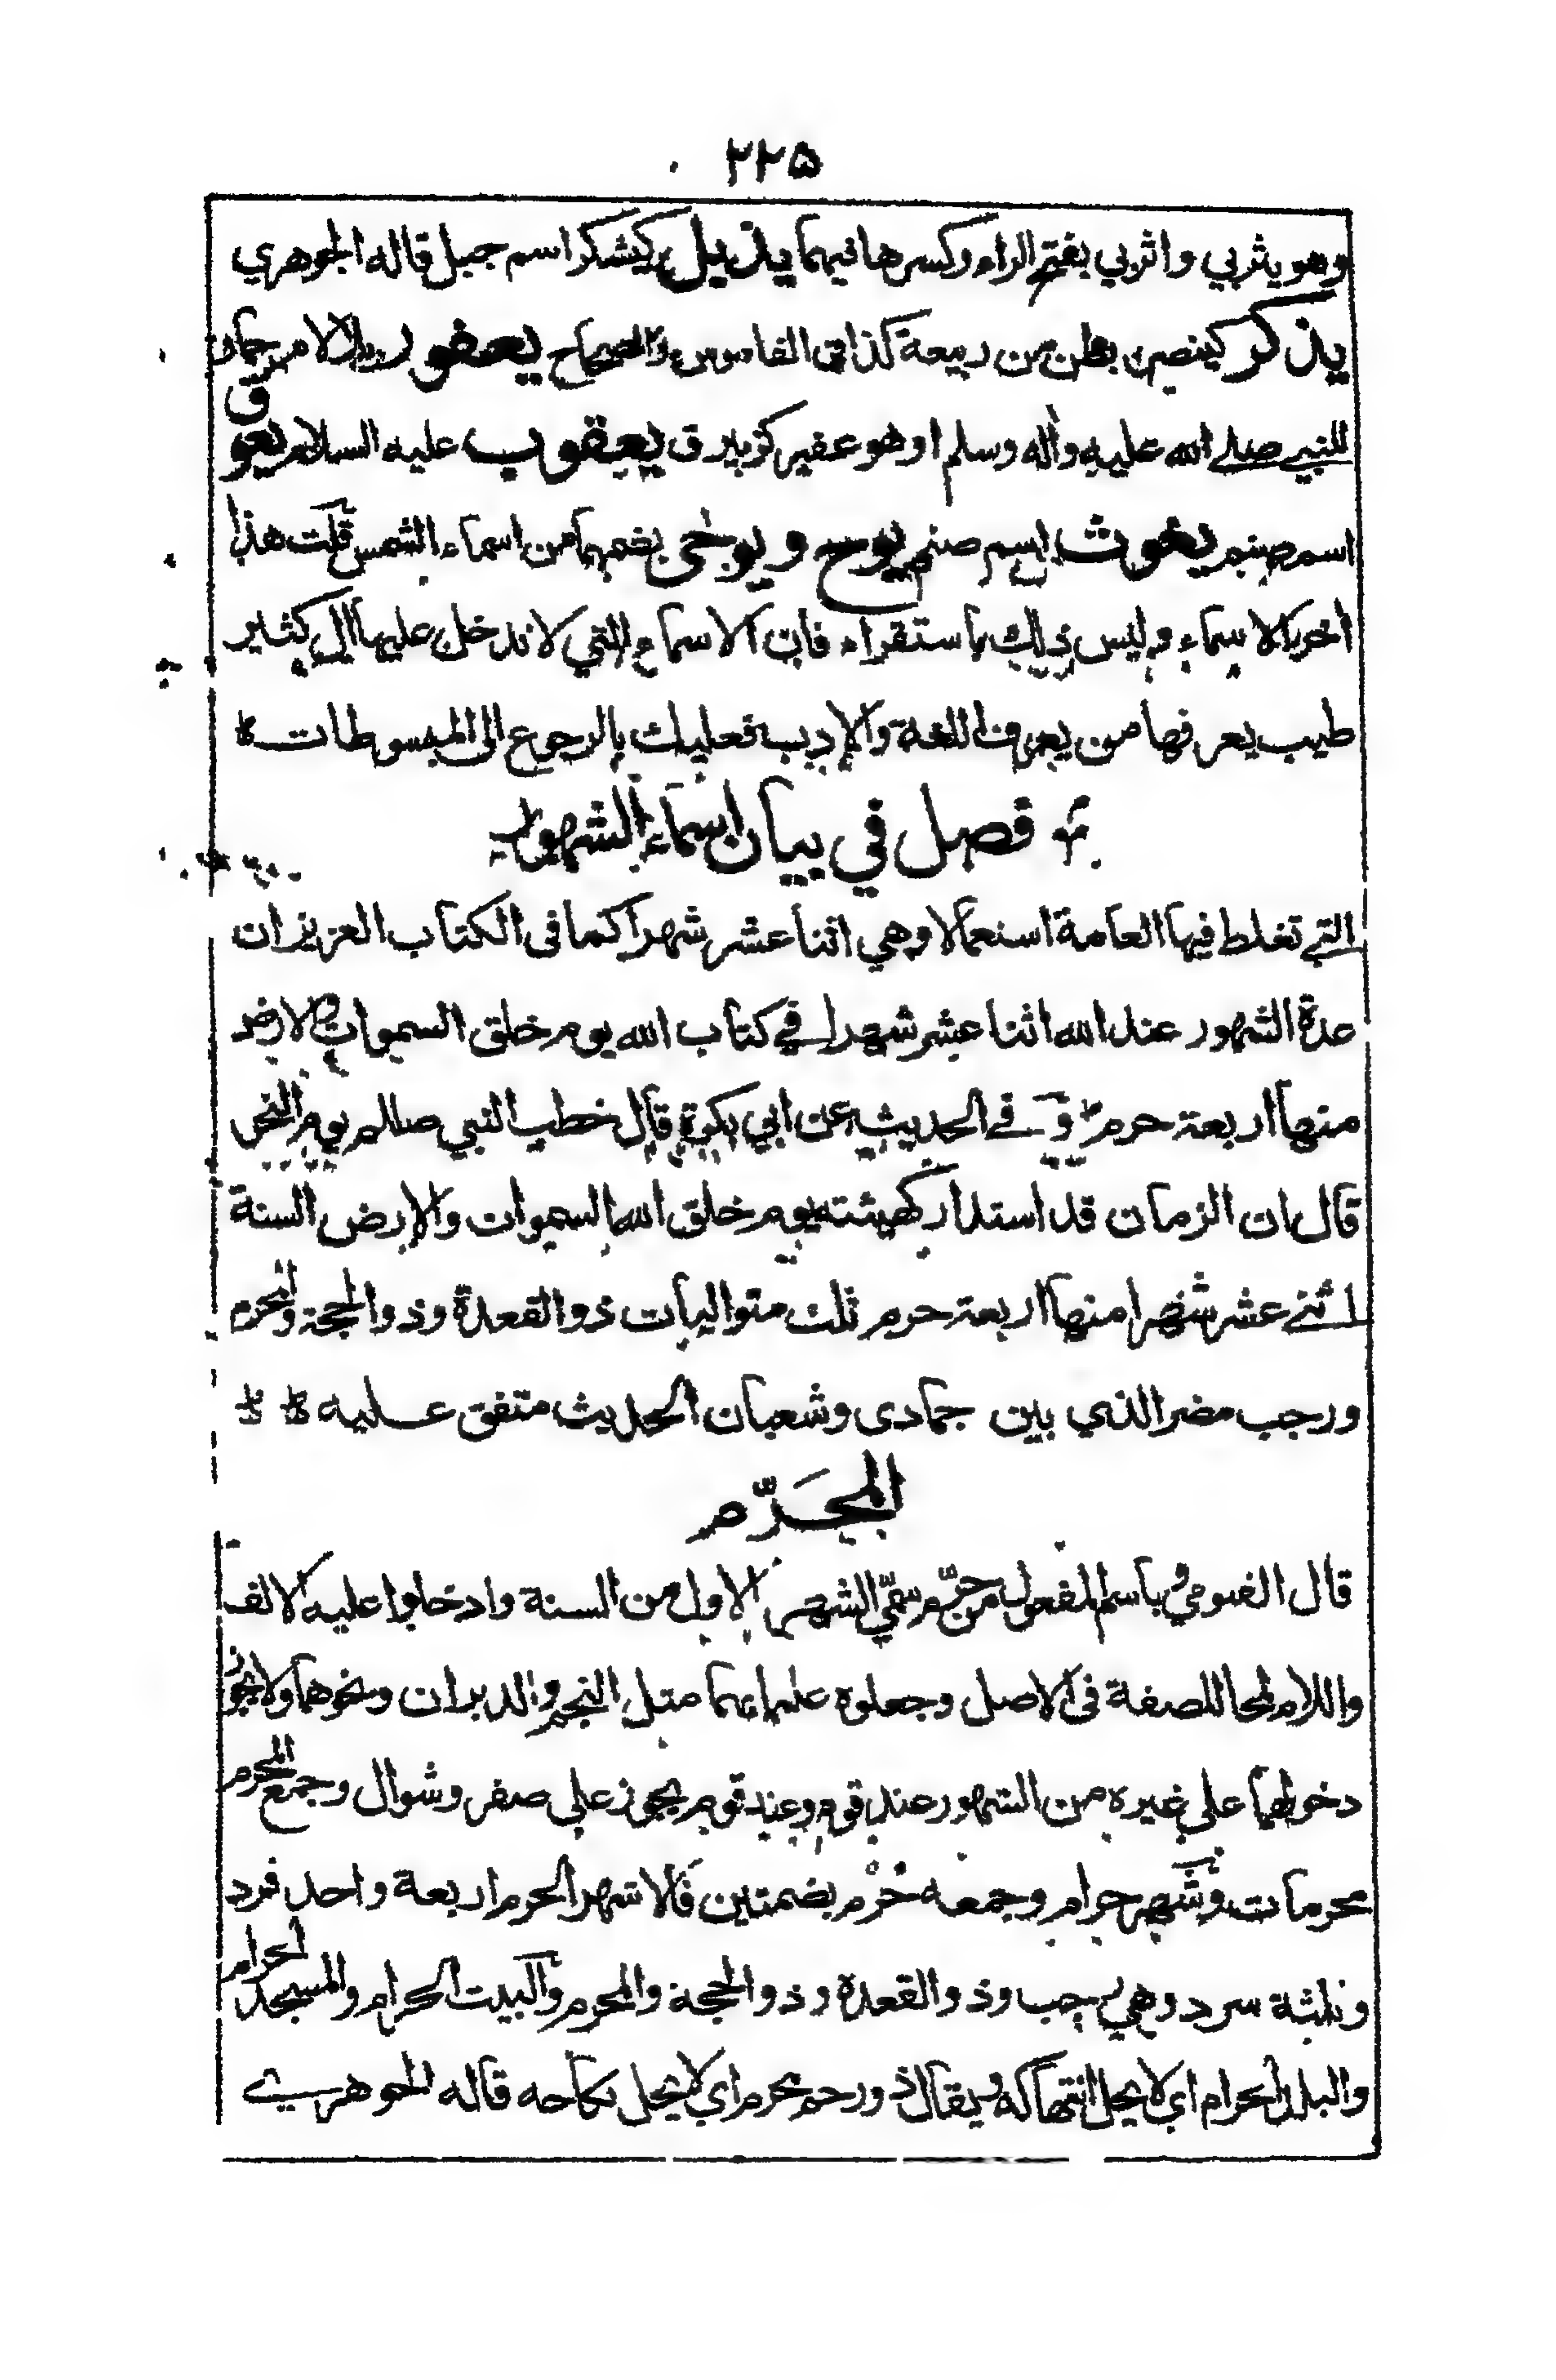 ٢٢٥
وهو يثربي واثربي بفتح الراء وكسرها فيهما يذبل كيشكر اسم جبل قاله الجوهري
يذكر كينصر بطن من ربيعة كذا في القاموس والصحاح يعفور بلا لام حمار
للنبي صلے الله عليه واٰله وسلم او هو عفير كزبير ق يعقوب عليه السلام يعوق
اسم صنم يغوث اسم صنم يوح ويوحى بضمهما من اسماء الشمس قلت هذا
اخر الاسماء وليس ذلك باستقراء فان الاسماء التي لا تدخل عليها ال كثير
طيب يعرفها من يعرف اللغة والادب فعليك بالرجوع الى المبسوطات
فصل في بيان اسماء الشهور
التي تغلط فيها العامة استعمالا وهي اثنا عشر شهرا كما فى الكتاب العزيز ان
عدة الشهور عند الله اثنا عشر شهرا في كتاب الله يوم خلق السموات والارض
منها اربعة حرم و في الحديث عن ابي بكرة قال خطب النبي صللم يوم النحر
قال ان الزمان قد استدار كهيئته يوم خلق الله السموات والارض السنة
اثنے عشر شهرا منها اربعة حرم ثلث متواليات ذو القعدة وذو الحجة والمحرم
ورجب مضر الذي بين جمادى وشعبان الحديث متفق عليه
المحَرّم
قال الفيومي وباسم المفعول من حرّم سمّي الشهر الاول من السنة وادخلوا عليه الالف
واللام لمحا للصفة فى الاصل وجعلوه علما بهما مثل النجم والدبران ونحوهما ولا يجوز
دخولهما على غيره من الشهور عند قوم وعند قوم يجوز على صفر وشوال وجمع المحرم
محرمات وشهر حرام وجمعه حُرْم بضمتين فالاشهر الحرم اربعة واحد فرد
وثلثة سرد وهي رجب وذو القعدة وذو الحجة والمحرم والبيت الحرام والمسجد الحرام
والبلد الحرام اي لا يحل انتهاكه ويقال ذو رحم محرم اي لا يحل نكاحه قاله الجوهري